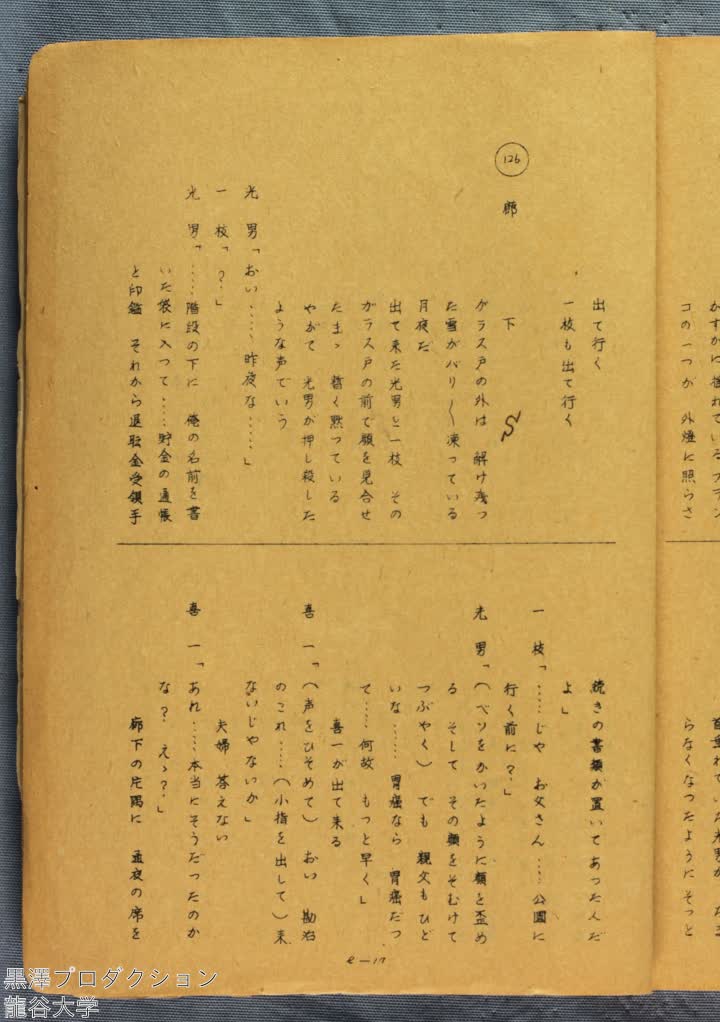 かすかに揺れているブラン
コの一つが　外燈に照らさ
らなくなつたようにそっと
出て行く
一枝も出て行く
126　廊　下
ガラス戸の外は　解け残っ
た雪がバリ〳〵凍っている
月夜だ
出て来た光男と一枝　その
ガラス戸の前で顔を見合せ
たまゝ　暫く黙っている
やがて　光男が押し殺した
ような声でいう
光　男「おい……昨夜な……」
一　枝「？」
光　男「……階段の下に　俺の名前を書
いた袋に入って……貯金の通帳
と印鑑　それから退職金受領手
続きの書類が置いてあったんだ
よ」
一　枝「……じゃ　お父さん……公園に
行く前に？」
光　男「（ベソをかいたように顔を歪め
る　そして　その顔をそむけて
つぶやく）　でも　親父もひど
いな……　胃癌なら　胃癌だっ
て……　何故　もっと早く」
喜一が出て来る
喜　一「（声をひそめて）　おい　勘治
のこれ……（小指を出して）来
ないじゃないか」
夫婦　答えない
喜　一「あれ……本当にそうだったのか
な？　えゝ？」
廊下の片隅に　通夜の席を
e—17
黒澤プロダクション
龍谷大学